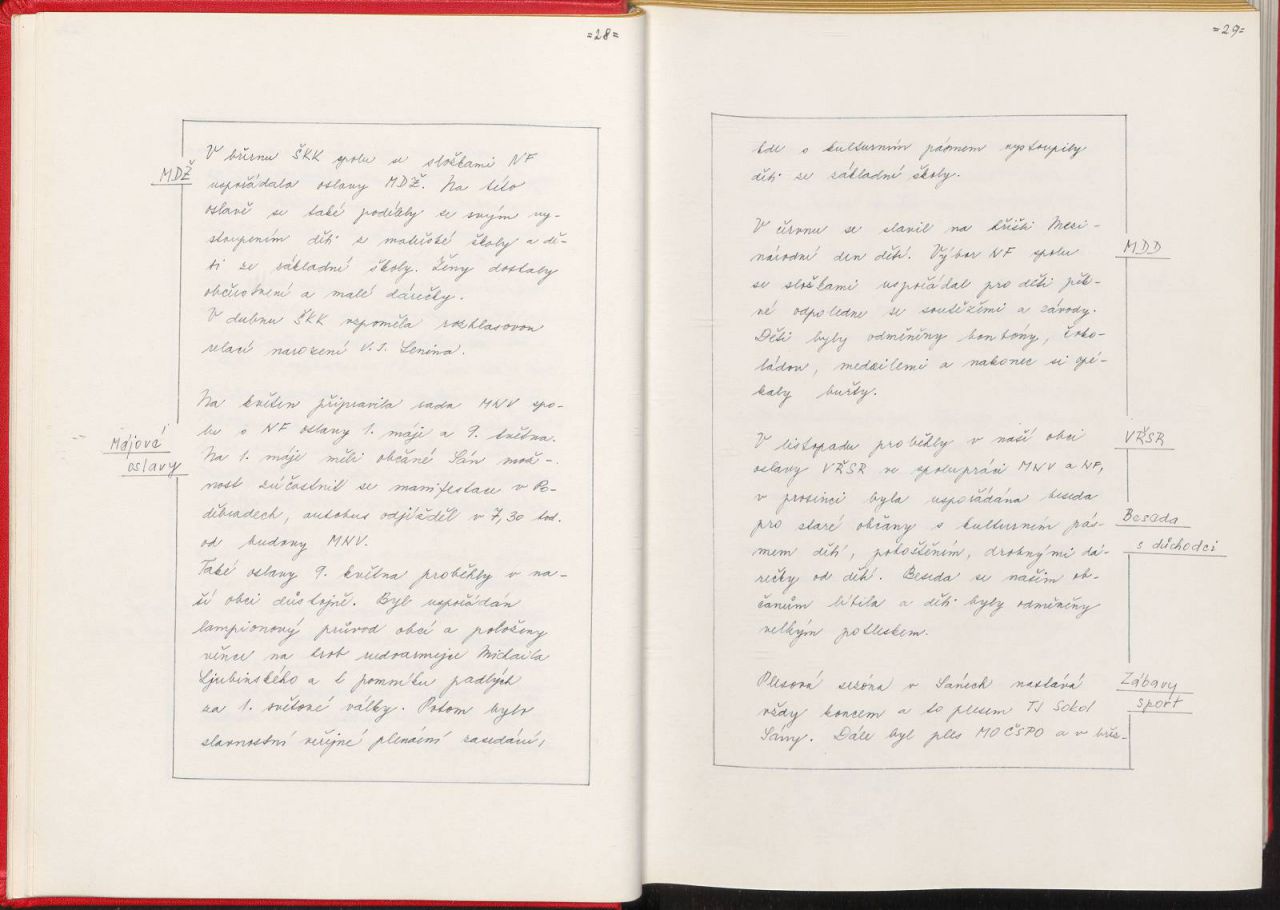 =28=
MDŽ
V březnu ŠKK spolu se složkami NF
uspořádala oslavy MDŽ. Na této
oslavě se také podílely se svým vy-
stoupením děti z mateřské školy a dě-
ti ze základní školy. Ženy dostaly
občerstvení a malé dárečky.
V dubnu ŠKK vzpoměla rozhlasovou
relací narození V. I. Lenina.
Májové
oslavy
Na květen připravila rada MNV spo-
lu s NF oslavy 1. máje a 9. května.
Na 1. máje měli občané Sán mož-
nost zúčastnit se manifestace v Po-
děbradech, autobus odjížděl v 7,30 hod.
od budovy MNV.
Také oslavy 9. května proběhly v na-
ší obci důstojně. Byl uspořádán
lampionový průvod obcí a položeny
věnce na hrob rudoarmejce Michaila
Ljubinského a k pomníku padlých
za 1. světové války. Potom bylo
slavnostní veřejné plenární zasedání,
=29=
kde s kulturním pásmem vystoupily
děti ze základní školy.
MDD
V červnu se slavil na hřišti Mezi-
národní den dětí. Výbor NF spolu
se složkami uspořádal pro děti pěk-
né odpoledne se soutěžemi a závody.
Děti byly odměněny bonbóny, čoko-
ládou, medailemi a nakonec si opé-
kaly buřty.
VŘSR
V listopadu proběhly v naší obci
oslavy VŘSR ve spolupráci MNV a NF,
v prosinci byla uspořádána beseda
Besada
s důchodci
pro staré občany s kulturním pás-
mem dětí, pohoštěním, drobnými dá-
rečky od dětí. Beseda se našim ob-
čanům líbila a děti byly odměněny
velkým potleskem.
Zábavy
sport
Plesová sezóna v Sánech nastává
vždy koncem a to plesem TJ Sokol
Sány. Dále byl ples MOČSPO a v břez-